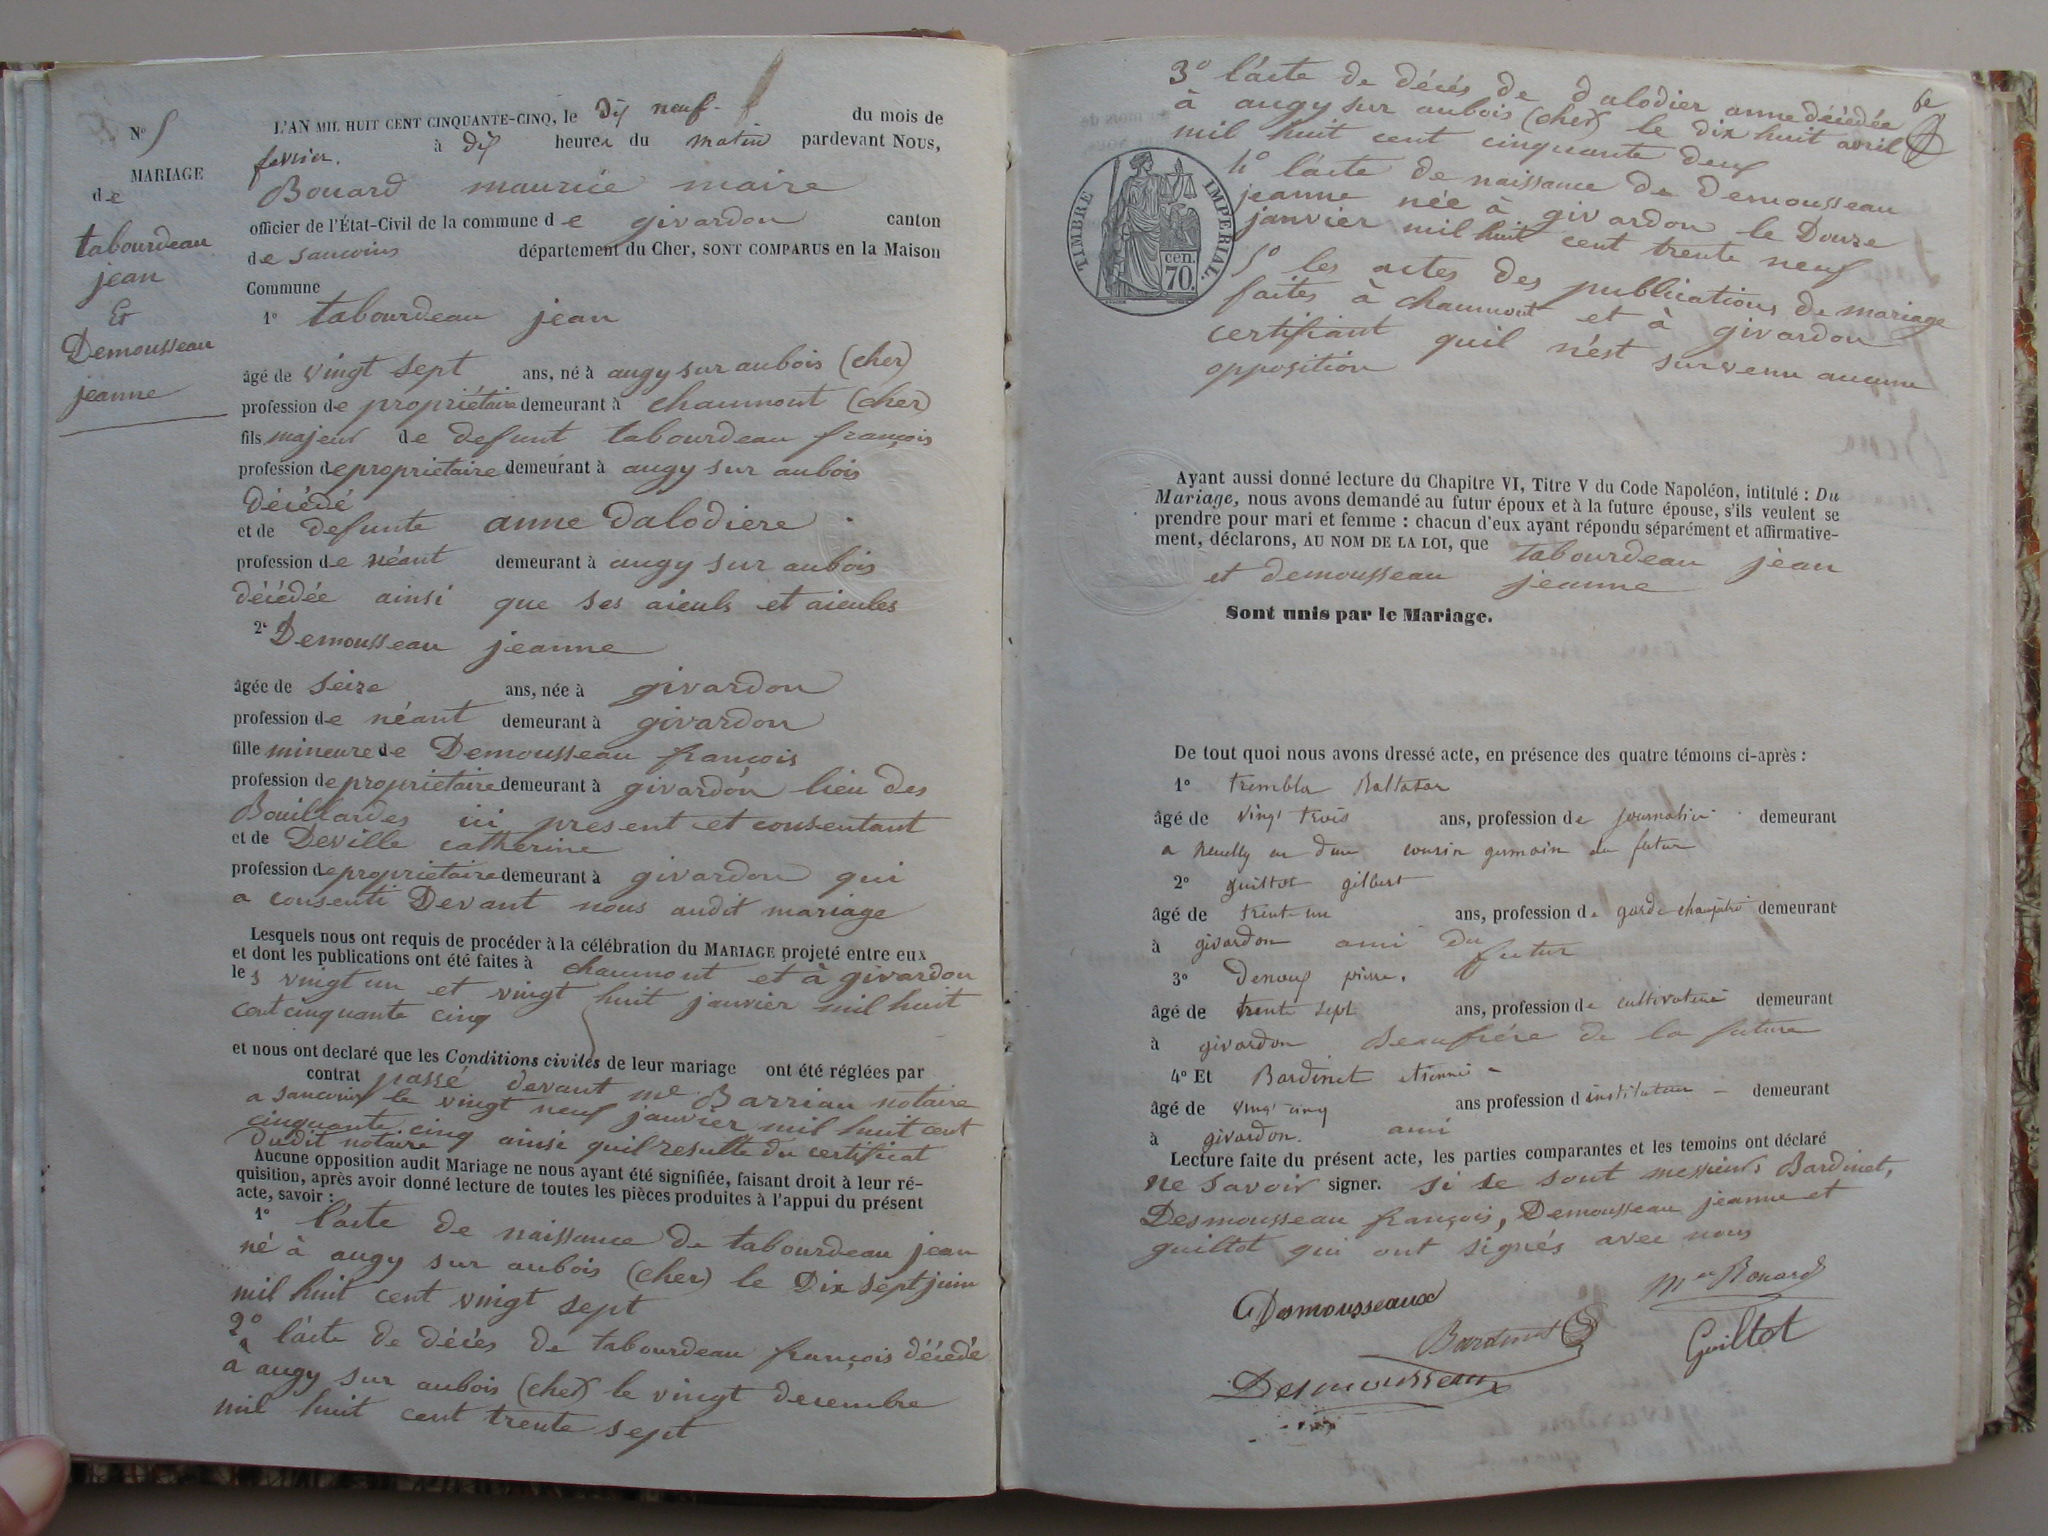 N° 5
MARIAGE
de
tabourdeau
jean
Et
Demousseau
jeanne
L'AN MIL HUIT CENT CINQUANTE-CINQ, le dix neuf du mois de
fevrier. à dix heures du matin pardevant NOUS,
Bouard maurice maire
officier de l'État-Civil de la commune de givardon canton
de sancoins département du Cher, SONT COMPARUS en la Maison
Commune
1° tabourdeau jean
âgé de vingt sept ans, né à augy sur aubois (cher)
profession de propriétaire demeurant à chaumont (cher)
fils majeur de defunt tabourdeau françois
profession de propriétaire demeurant à augy sur aubois
décédé
et de defunte anne dalodiere
profession de néant demeurant à augy sur aubois
décédée ainsi que ses aieuls et aieules
2° Demousseau jeanne
âgée de seize ans, née à givardon
profession de néant demeurant à givardon
fille mineure de Demousseau françois
profession de propriétaire demeurant à givardon lieu des
Bouillardes ici present et consentant
et de Deville catherine
profession de propriétaire demeurant à givardon qui
a consenti Devant nous audit mariage
Lesquels nous ont requis de procéder à la célébration du MARIAGE projeté entre eux
et dont les publications ont été faites à chaumont et à givardon
les vingt un et vingt huit janvier mil huit
cent cinquante cinq
et nous ont declaré que les Conditions civiles de leur mariage ont été réglées par
contrat passé devant me Barriau notaire
a sancoins le vingt neuf janvier mil huit cent
cinquante cinq ainsi quil resulte du certificat
dudit notaire
Aucune opposition audit Mariage ne nous ayant été signifiée, faisant droit à leur ré-
quisition, après avoir donné lecture de toutes les pièces produites à l'appui du présent
acte, savoir :
1° l'acte de naissance de tabourdeau jean
né à augy sur aubois (cher) le Dix sept juin
mil huit cent vingt sept
2° l'acte de décés de tabourdeau françois décédé
à augy sur aubois (cher) le vingt decembre
mil huit cent trente sept
6e
3° l'acte de décés de dalodier anne décédée
à augy sur aubois (cher) le dix huit avril
mil huit cent cinquante deux
4° l'acte de naissance de demousseau
jeanne née à givardon le Douze
janvier mil huit cent trente neuf
5° les actes des publications de mariage
faites à chaumont et à givardon
certifiant quil n'est survenu aucune
opposition
TIMBRE IMPERIAL.
70 cen.
Ayant aussi donné lecture du Chapitre VI, Titre V du Code Napoléon, intitulé : Du
Mariage, nous avons demandé au futur époux et à la future épouse, s'ils veulent se
prendre pour mari et femme : chacun d'eux ayant répondu séparément et affirmative-
ment, déclarons, AU NOM DE LA LOI, que tabourdeau jean
et demousseau jeanne
Sont unis par le Mariage.
De tout quoi nous avons dressé acte, en présence des quatre témoins ci-après :
1° trembla Baltasar
âgé de vingt trois ans, profession de journalier demeurant
a neuilly en dun cousin germain du futur
2° guiltot gilbert
âgé de trente un ans, profession de garde champêtre demeurant
à givardon ami du futur
3° Denoux pierre.
âgé de trente sept ans, profession de cultivateur demeurant
à givardon Beaufrére de la future
4° Et Bardinet etienne
âgé de vingt cinq ans profession d instituteur demeurant
à givardon. ami
Lecture faite du présent acte, les parties comparantes et les temoins ont déclaré
ne savoir signer. si se sont messieurs Bardinet,
Desmousseau françois, Demousseau jeanne et
guiltot qui ont signés avec nous
Desmousseaux
Mce Bouard
Bardinet
Guiltot
Desmousseaux